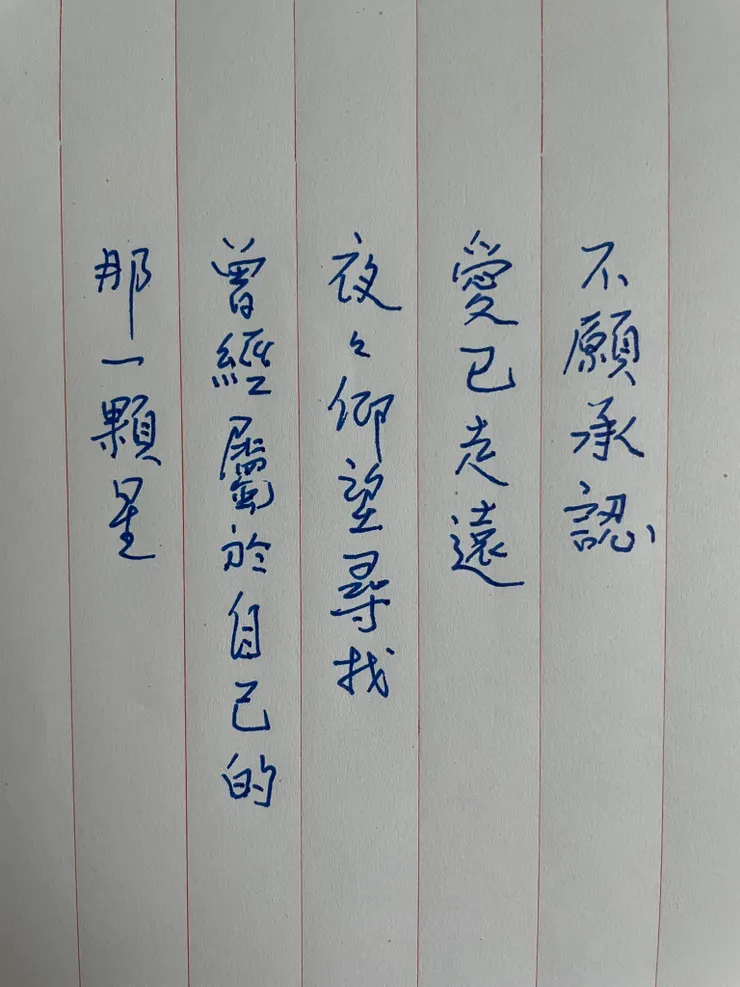 不願承認
愛已走遠
夜々仰望尋找
曾經屬於自己的
那一顆星